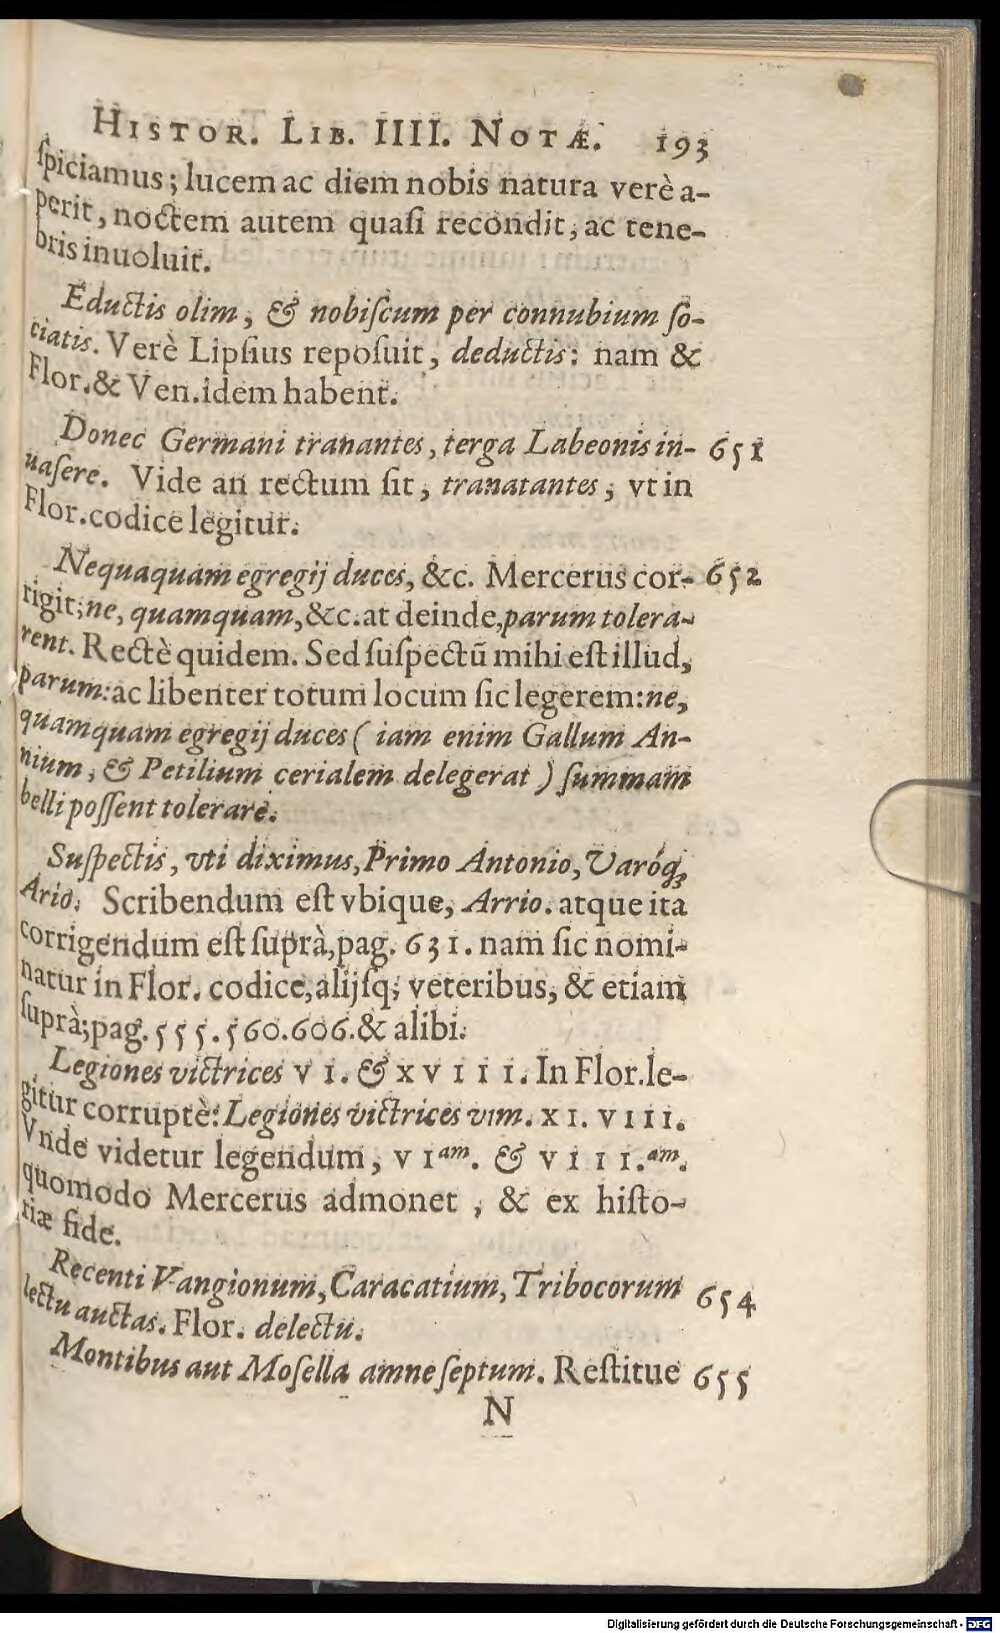 HISTOR. LIB. IIII. NOTÆ. 193
ſpiciamus; lucem ac diem nobis natura verè a-
perit, noctem autem quaſi recondit, ac tene-
bris inuoluit.
Eductis olim, & nobiſcum per connubium ſo-
ciatis. Verè Lipſius repoſuit, deductis: nam &
Flor. & Ven. idem habent.
Donec Germani tranantes, terga Labeonis in- 651
uaſere. Vide an rectum ſit, tranatantes, vt in
Flor. codice legitur.
Nequaquam egregij duces, &c. Mercerus cor- 652
rigit; ne, quamquam, &c. at deinde, parum tolera-
rent. Rectè quidem. Sed ſuſpectū mihi eſt illud,
parum: ac libenter totum locum ſic legerem: ne,
quamquam egregij duces ( iam enim Gallum An-
nium, & Petilium cerialem delegerat ) ſummam
belli poſſent tolerare.
Suſpectis, vti diximus, Primo Antonio, Varóq;
Ario. Scribendum eſt vbique, Arrio. atque ita
corrigendum eſt ſuprà, pag. 631. nam ſic nomi-
natur in Flor. codice, alijſq; veteribus, & etiam
ſuprà; pag. 555. 560. 606. & alibi.
Legiones victrices VI. & XVIII. In Flor. le-
gitur corruptè: Legiones victrices vim. XI. VIII.
Vnde videtur legendum, VI^am. & VIII.^am.
quomodo Mercerus admonet, & ex hiſto-
riæ fide.
Recenti Vangionum, Caracatium, Tribocorum 654
lectu auctas. Flor. delectu.
Montibus aut Moſella amne ſeptum. Reſtitue 655
N
Digitalisierung gefördert durch die Deutsche Forschungsgemeinschaft - DFG